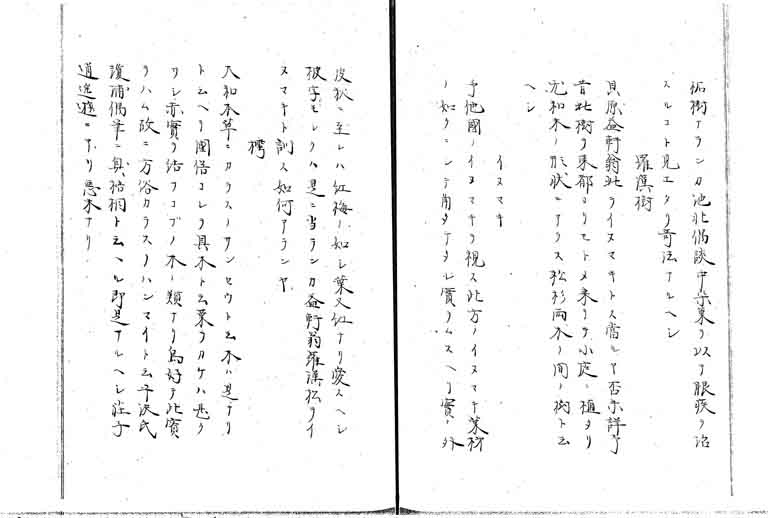 柘樹アランカ池北偶談中桑葉ヲ以テ眼疾ヲ治
スルコト見エタリ奇法ナルヘシ
羅漢樹
貝原益軒翁此ヲイヌマキトス當レリヤ否未詳予
昔此樹ヲ東都ヨリモトメ来リテ小庭ニ植タリ
尤和木ノ形状ニアラス松杉両木ノ間ノ樹ト云
ヘシ
イスマキ
予他國ノイヌマキヲ視ス此方ノイスマキ葉柃
ノ如クニシテ
實ヲムスヘリ實ノ外
皮秋ニ至レハ紅梅ノ如シ葉又紅ナリ愛スヘシ
彼字モシクハ是ニ当ランカ益軒翁羅漢松ヲイ
ヌマキト訓ス如何アランヤ
樗
大和本草ニカラスノサンセウト云木ハ是ナリ
トムヘリ國俗コレヲ具木ト云葉ヲカケハ甚ク
サシ赤實ヲ結フコブノ木ノ類ナリ烏好テ此實
ヲハム故ニ方俗カラスノハンマイトモ云
濩
筆ニ臭
ト云ヘル即是ナルヘシ荘子
逍遥遊ニアリ悪木ナリ